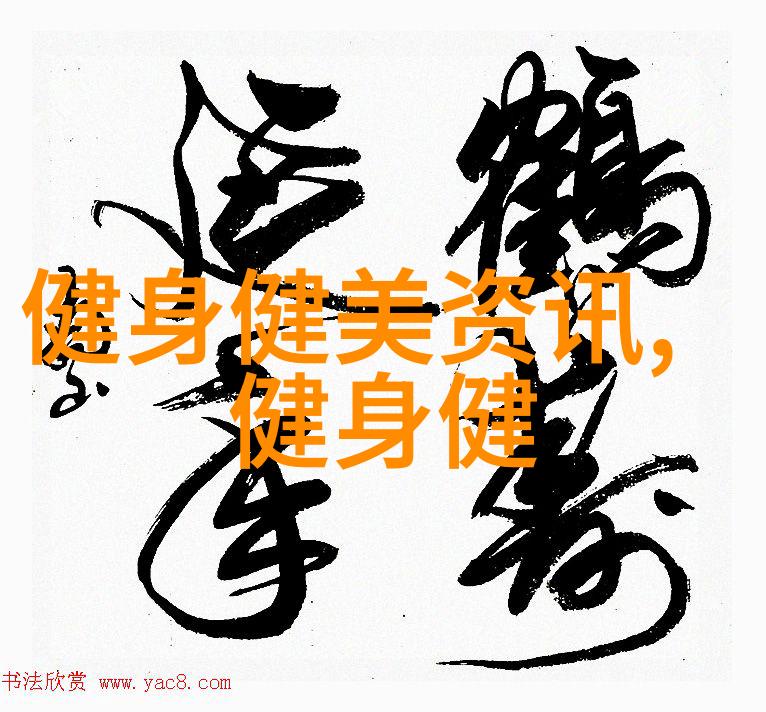 鹤寿
遐年
健身健美资讯,
健身健
书法欣赏 www.yac8.com